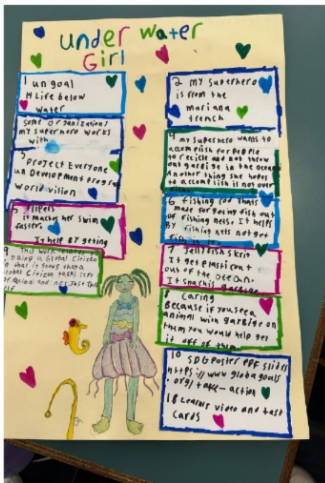 under water
Girl
1 un goal
14 Life below
water
some organizations
my superhero works
with
3
Project Everyone
un Development program
world vision
5 flipers
it makes her swim
faster.
It help by getting
2 my superhero
is from the
mariana
trench
4
my superhero wants to
accomplish for people
to recicle and not throw
out garbige in the oceans
Another thing she hopes
to accomplish is not over
6 fishing rod thats
made for fish out
of fishing nets. It helps
By fishing nets not
7 Jellyfish skirt
It get plastic out
out of the ocean.
8 caring
Because if you see a
animal with garbige on
them you would help get
it off of them
9 This
being a Global Citizen
Global Citizen
of and not just
10 SDG Poster PDF slides
https://www.globalgoals
.org/take-action
18 Learner video and task
cards